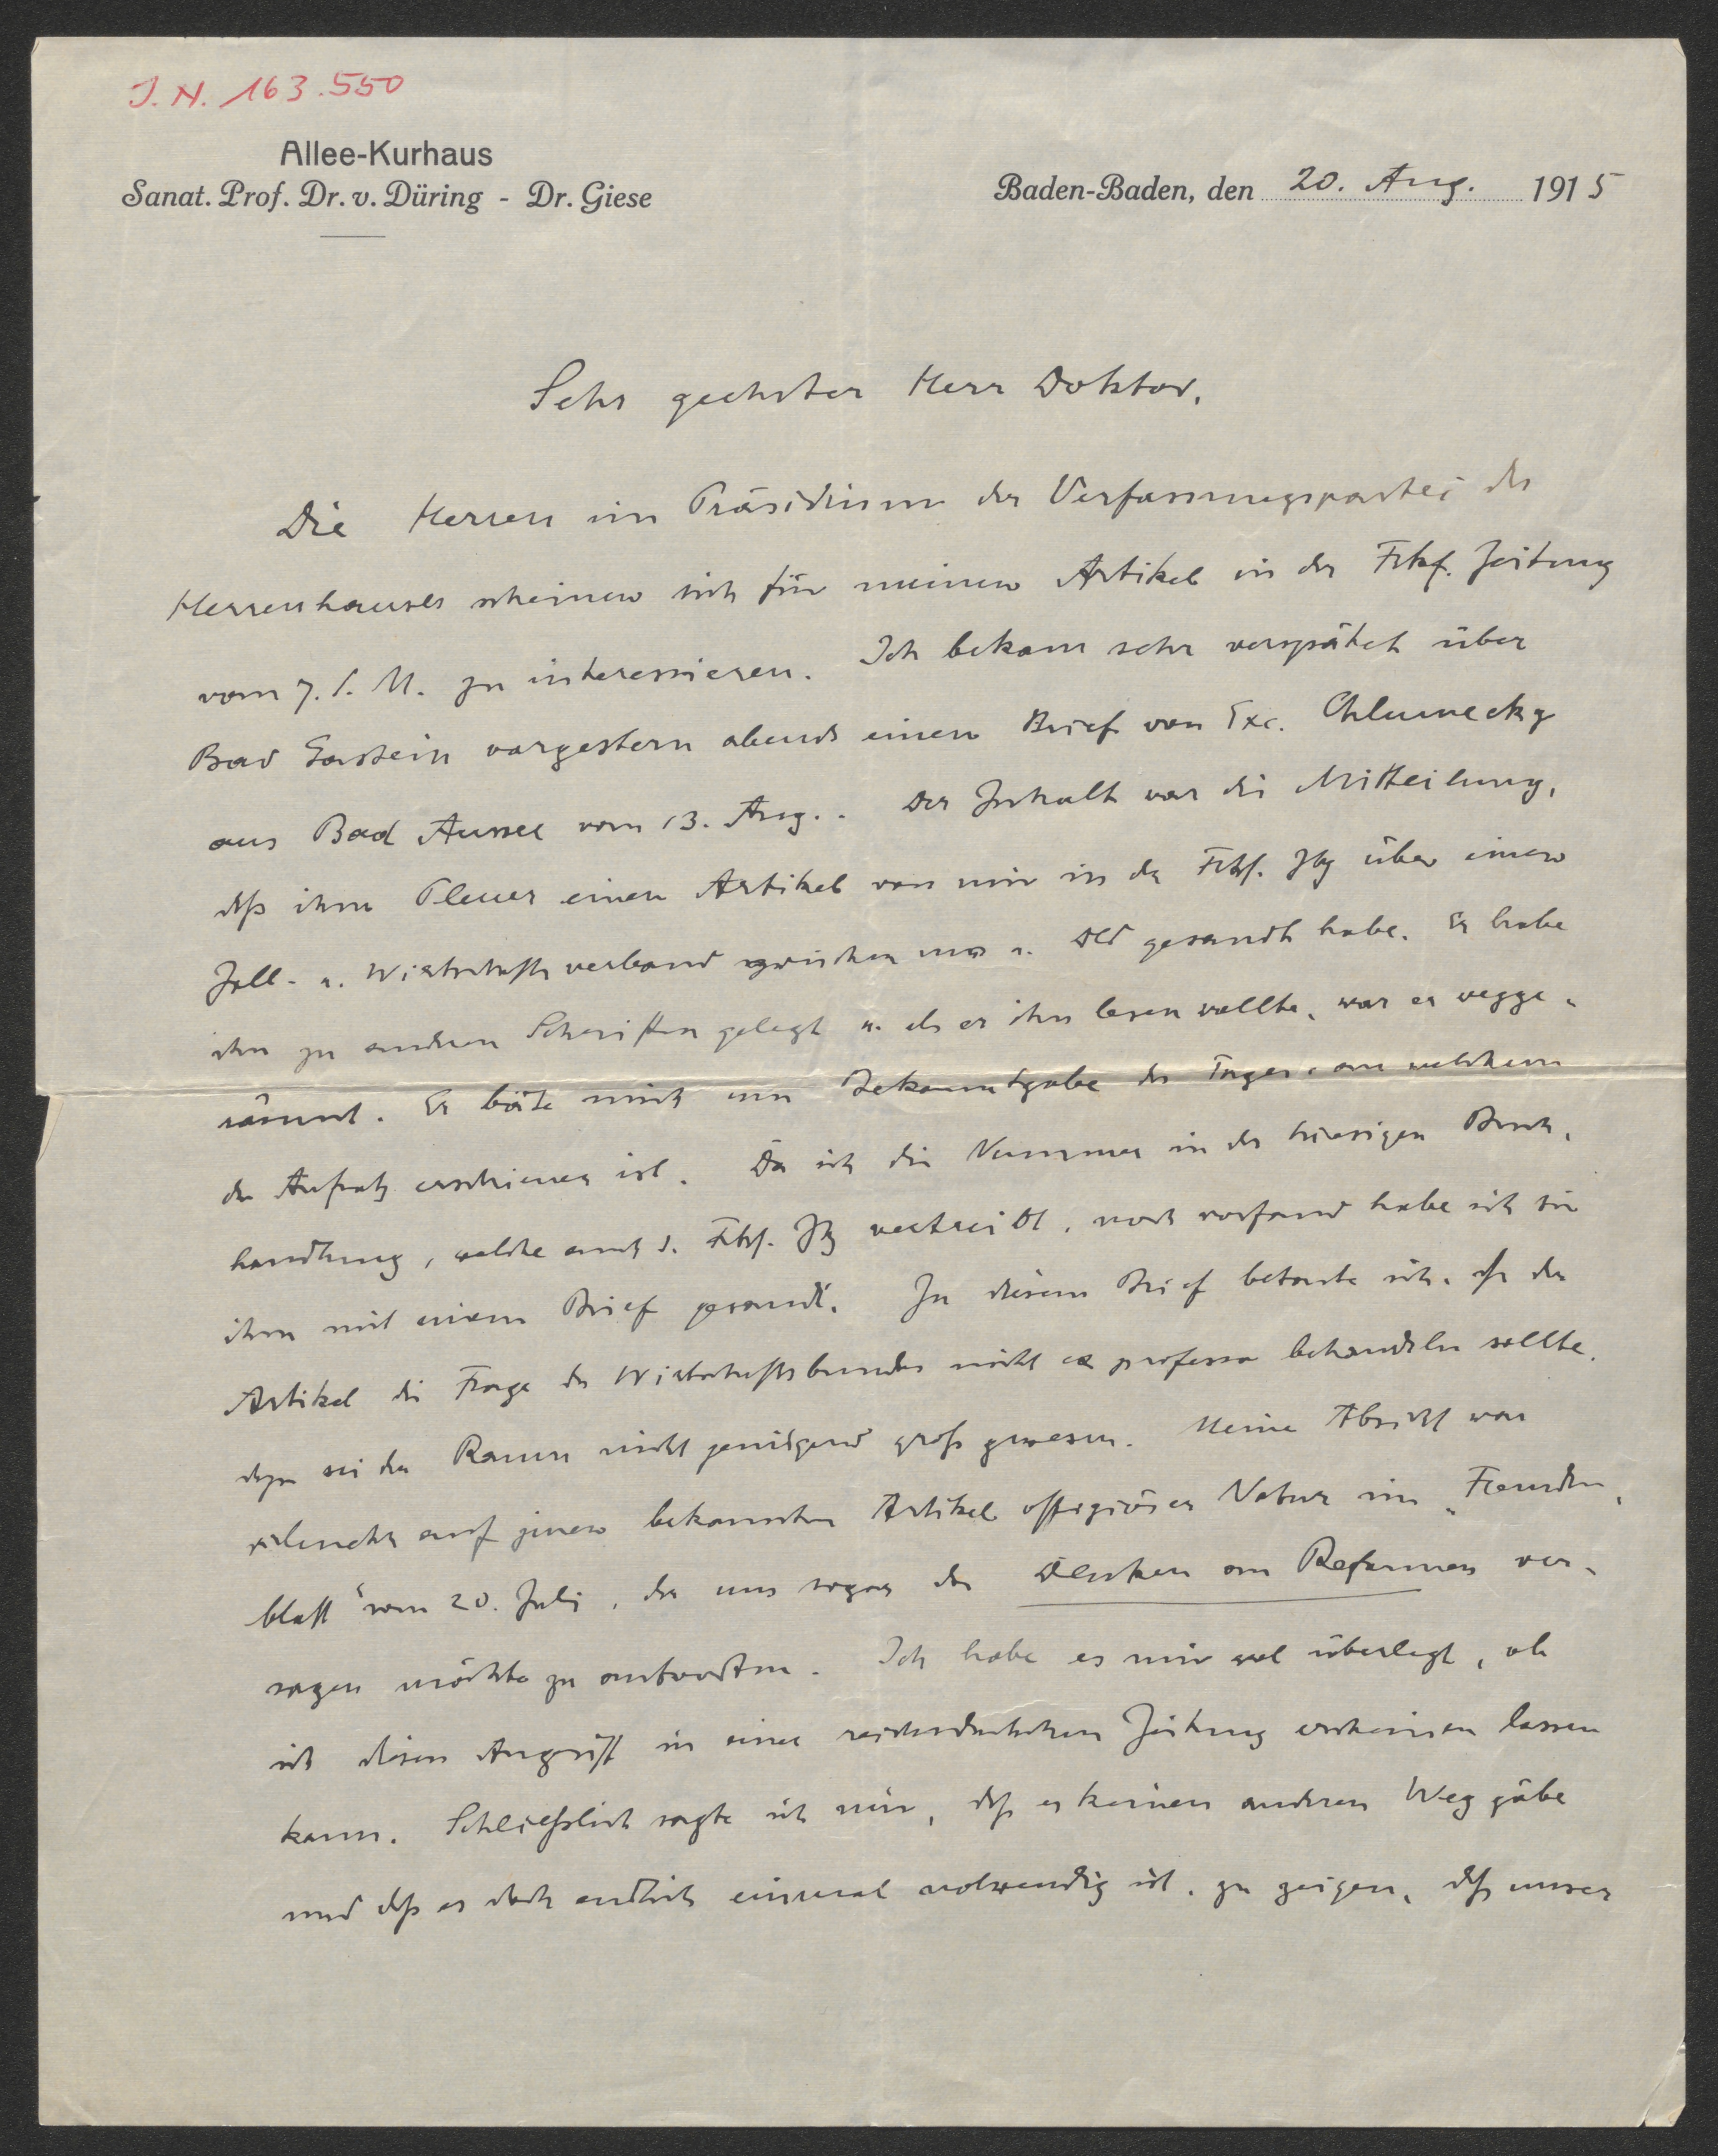 J. N. 163.550
Allee-Kurhaus
Sanat. Prof. Dr. v. Düring - Dr. Giese
Baden-Baden, den 20. Aug. 1915
Sehr geehrter Herr Doktor,
Die Herren im Präsidium der Verfassungspartei des
Herrenhauses scheinen sich für meinen Artikel in der Frkf. Zeitung
vom 7. l. M. zu interessieren. Ich bekam sehr verspätet über
Bad Gastein vorgestern abends einen Brief von Exc. Chlumecky
aus Bad Aussee vom 13. Aug.. Der Inhalt war die Mitteilung,
daß ihm Plener einen Artikel von mir in der Frkf. Ztg über einen
Zoll- u. Wirtschaftsverband zwischen uns u. Dld gesandt habe. Er habe
ihn zu anderen Schriften gelegt u. als er ihn lesen wollte, war er wegge-
räumt. Er bäte mich um Bekanntgabe des Tages, an welchem
der Aufsatz erschienen ist. Da ich die Nummer in der hiesigen Buch-
handlung, welche auch d. Frkf. Ztg vertreibt, noch vorfand habe ich sie
ihm mit einem Brief gesandt. In diesem Brief betonte ich, daß der
Artikel die Frage des Wirtschaftsbundes nicht ex professo behandeln sollte,
dazu sei der Raum nicht genügend groß gewesen. Meine Absicht war
vielmehr auf jenen bekannten Artikel offiziöser Natur im „Fremden-
blatt“ vom 20. Juli, der uns sogar das Denken an Reformen ver-
sagen möchte zu antworten. Ich habe es mir wol überlegt, ob
ich diesen Angriff in einer reichsdeutschen Zeitung erscheinen lassen
kann. Schließlich sagte ich mir, daß es keinen anderen Weg gäbe
und daß es doch endlich einmal notwendig ist, zu zeigen, daß unser